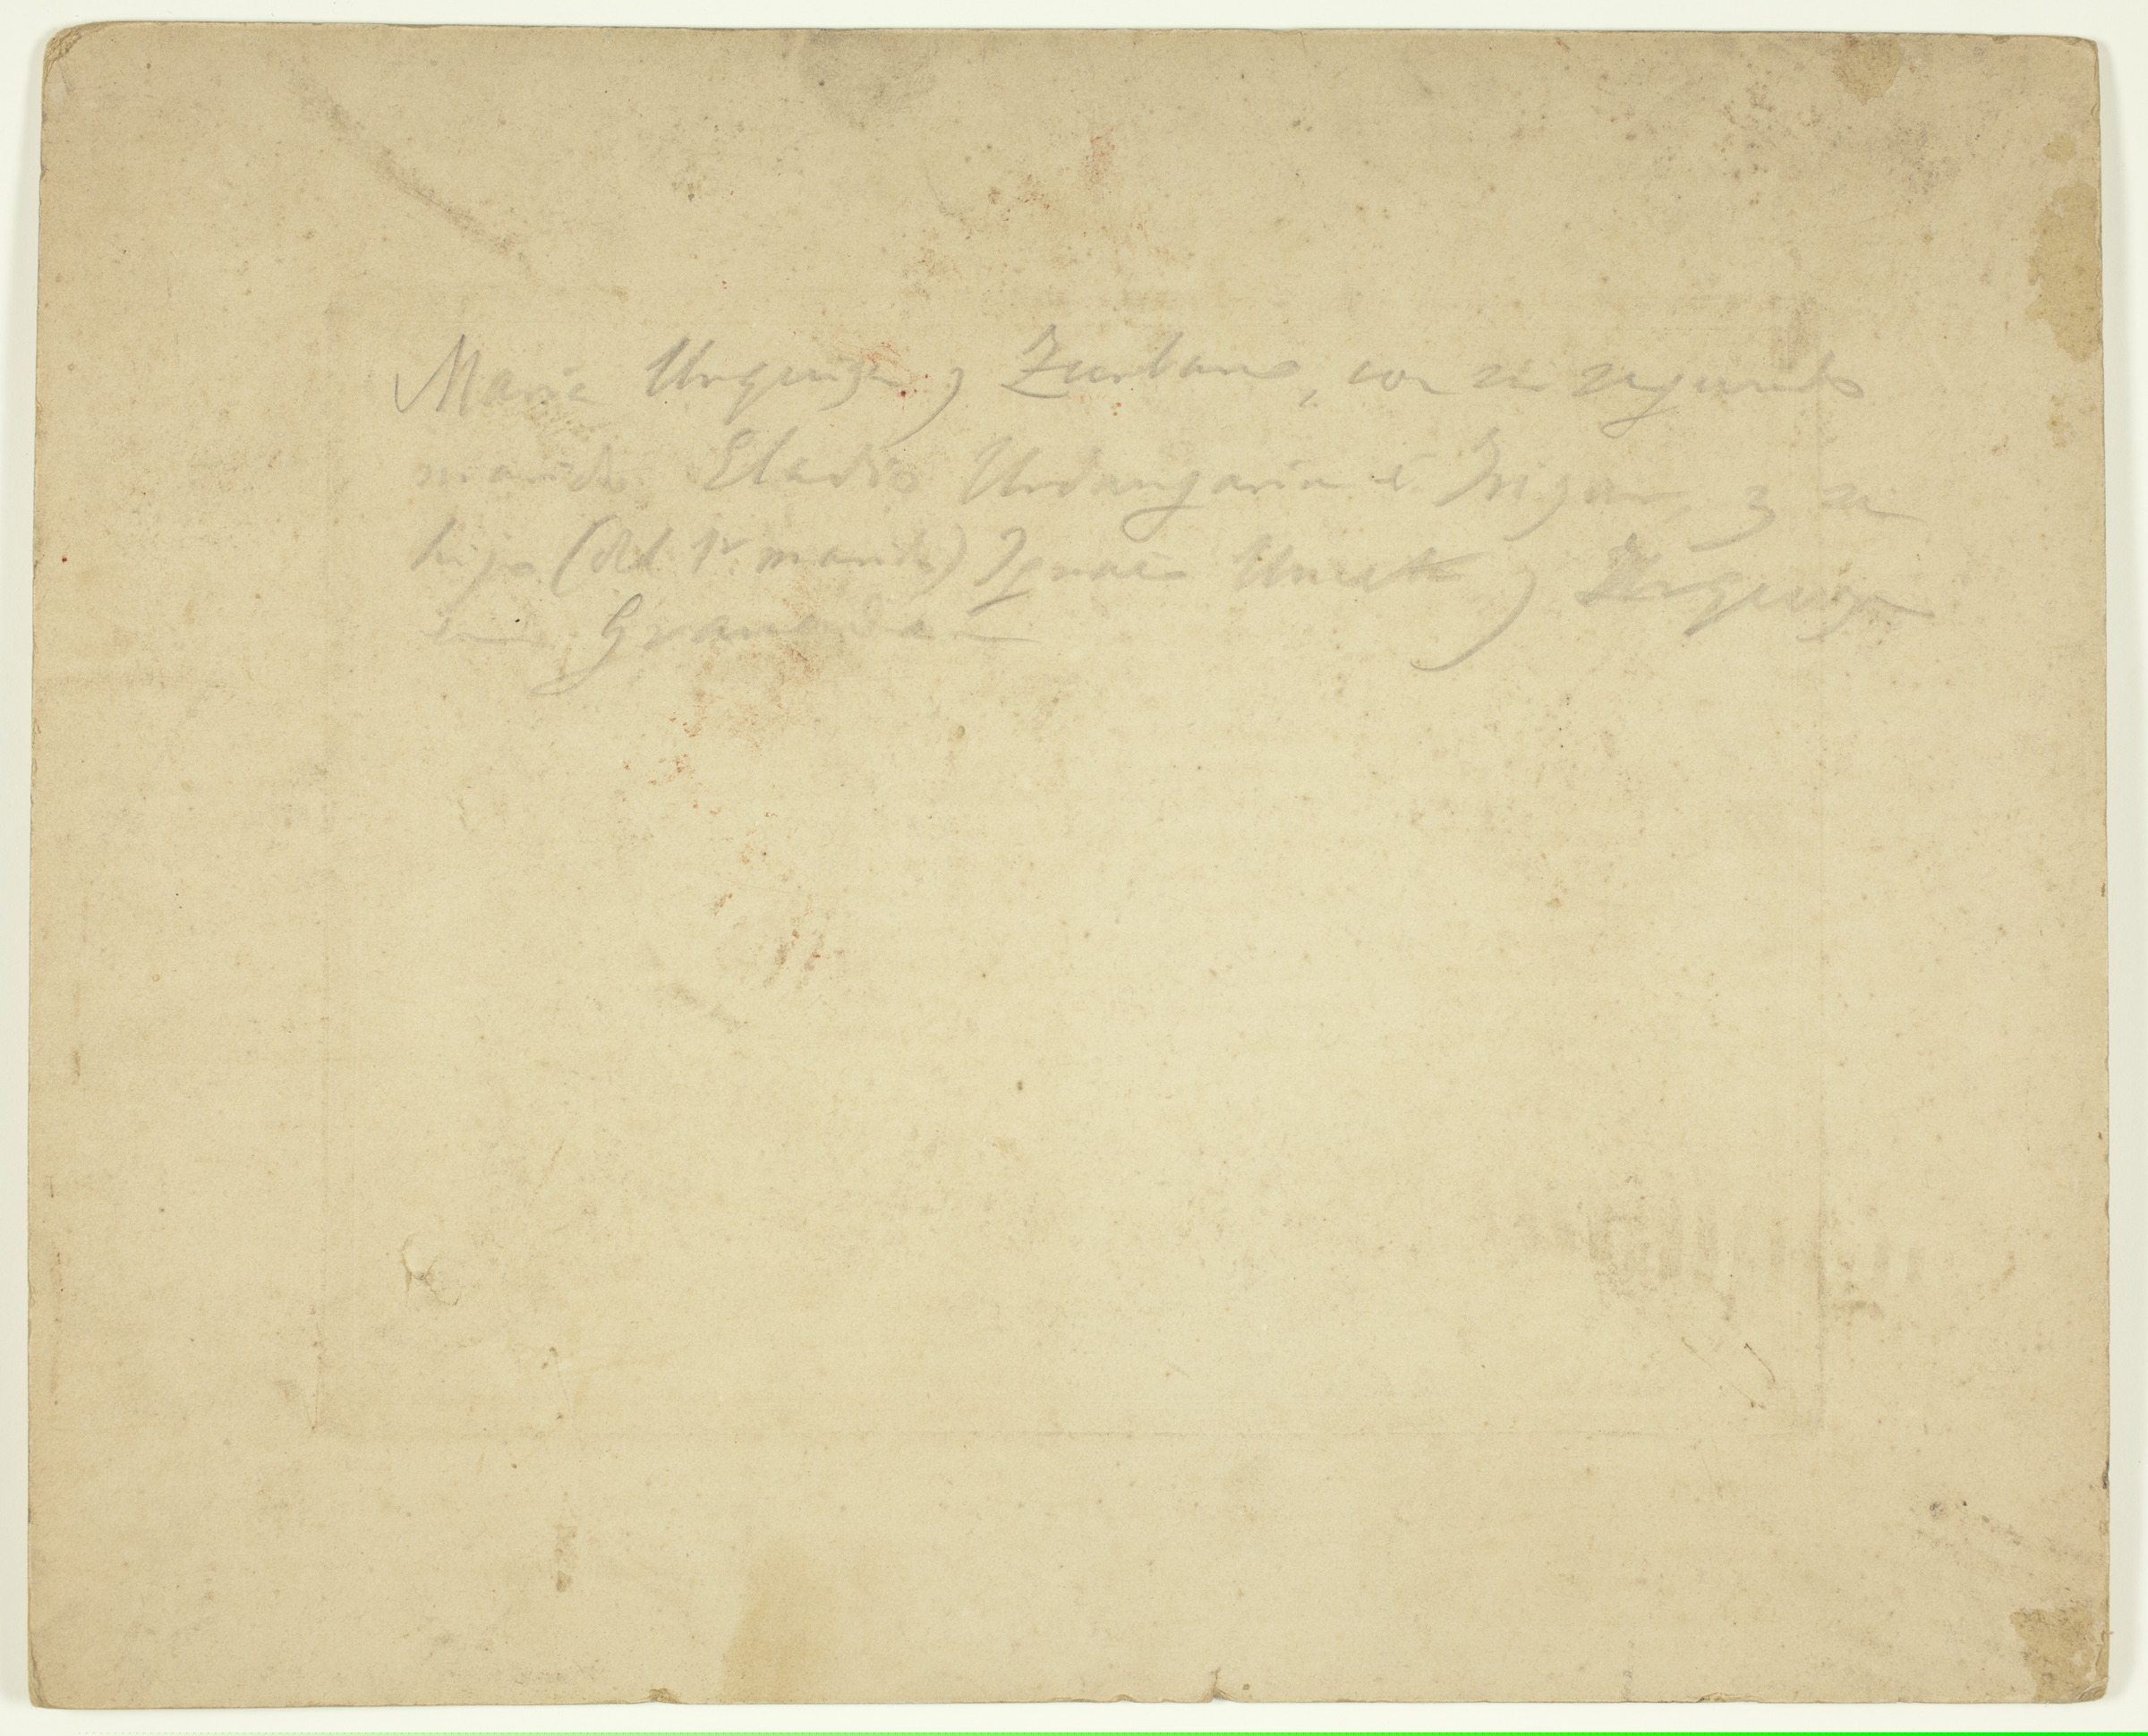 Maria Urquiza y Zurbano, con su segundo
marido Eladio Urdangarin é Irigar, y su
hijo (del 1r. marido) Ignacio Unceta y Urquiza
en Granada